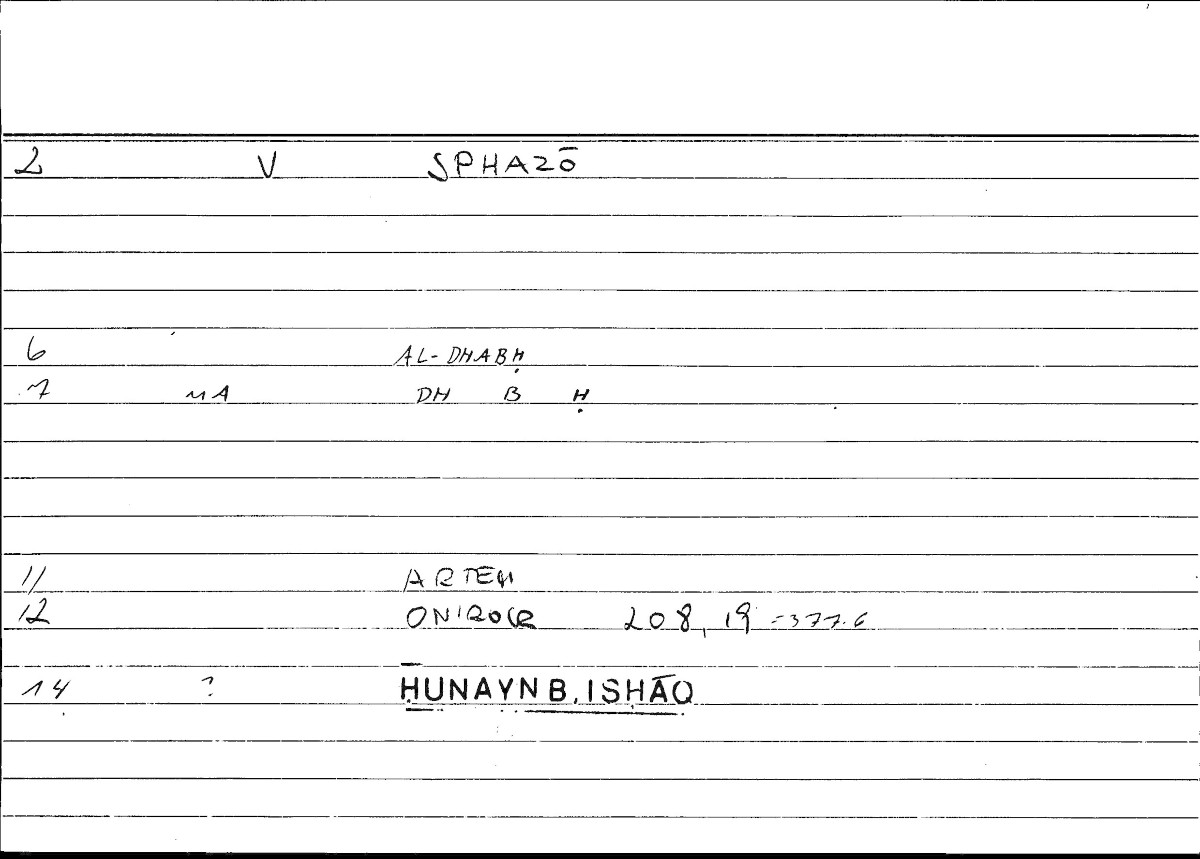 2 V SPHAZŌ
6 AL-DHABḤ
7 MA DH B Ḥ
11 ARTEM
12 ONIROCR 208,19 = 377.6
14 ? ḤUNAYN B. ISḤĀQ